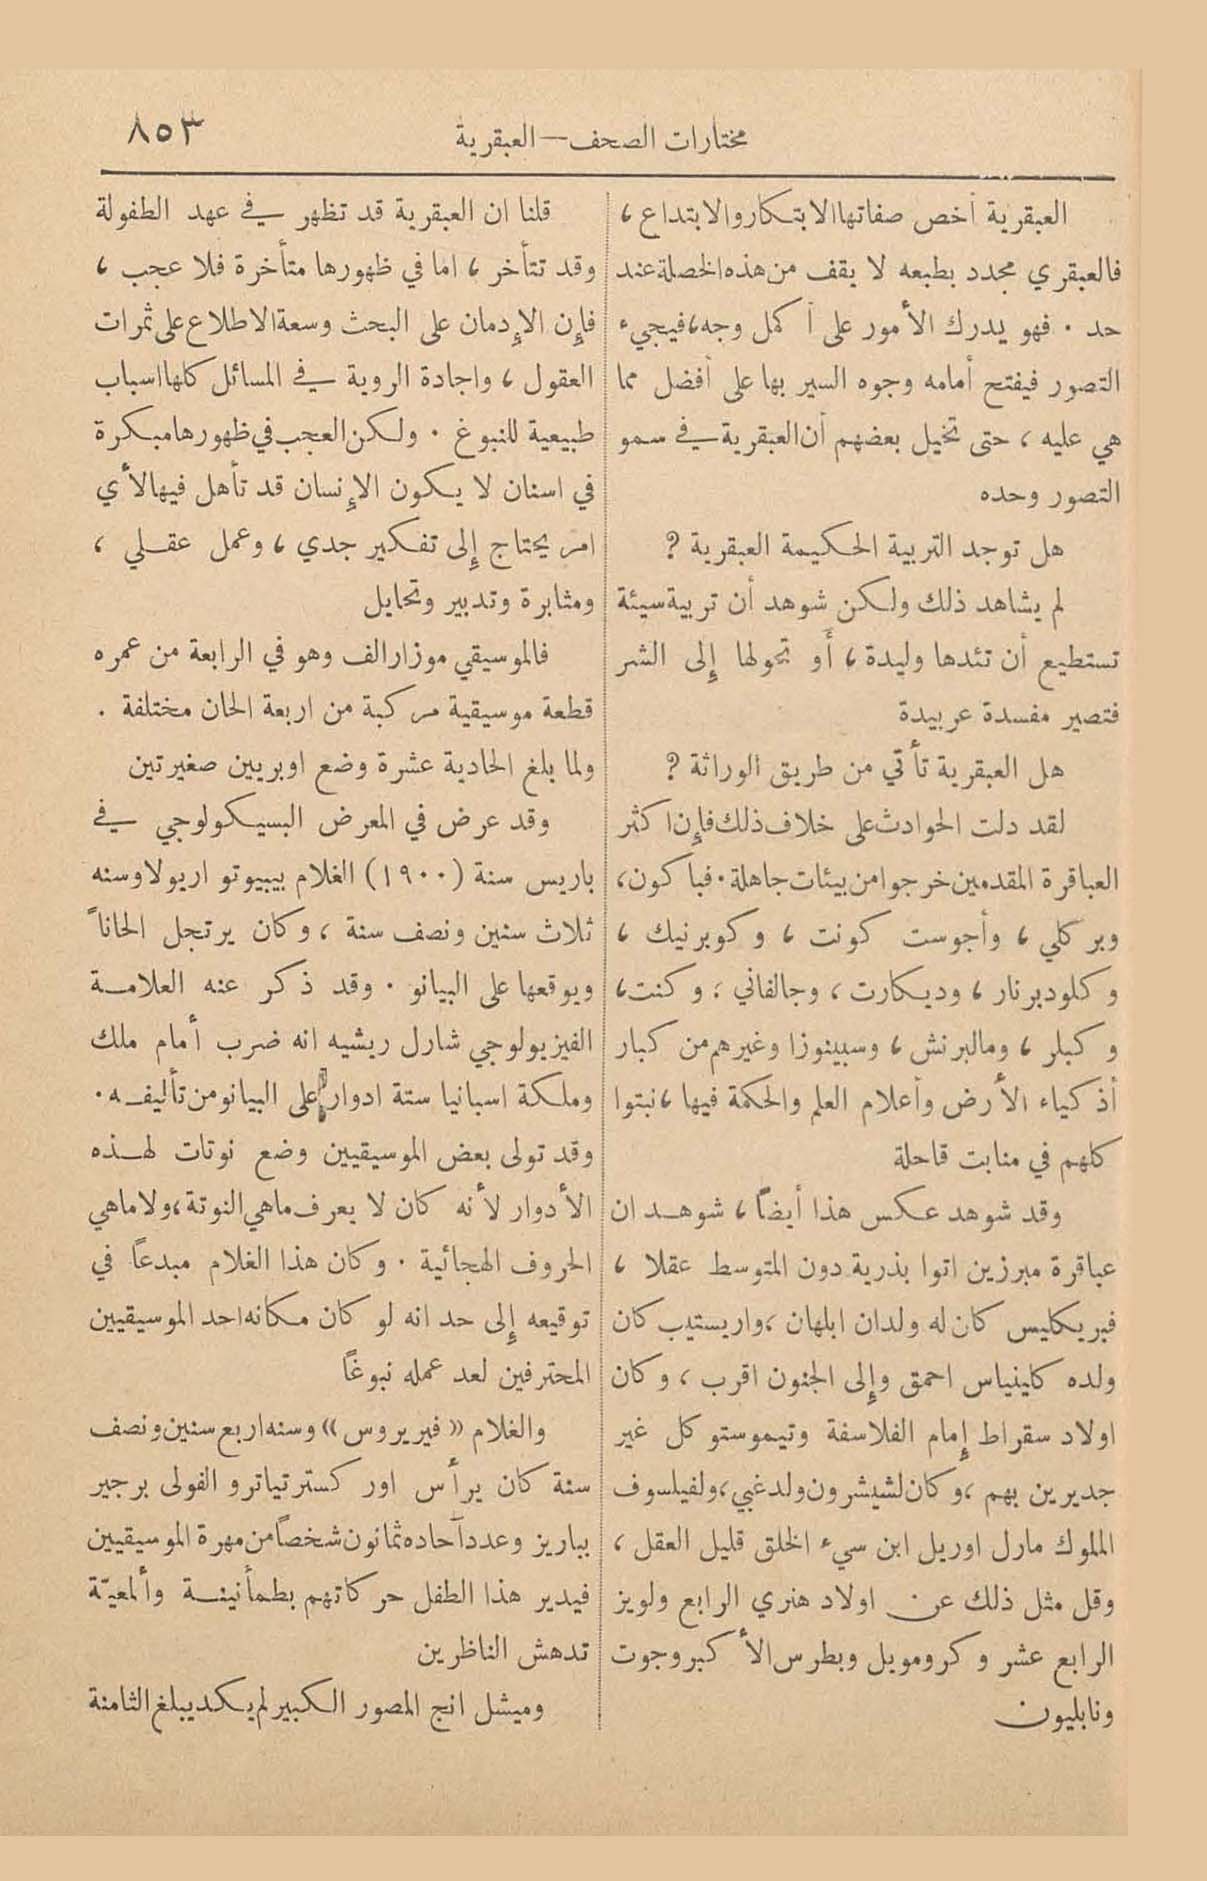 مختارات الصحف — العبقرية
٨٥٣
العبقرية أخص صفاتها الابتكار والابتداع ،
فالعبقري مجدد بطبعه لا يقف من هذه الخصلة عند
حد . فهو يدرك الأمور على أكمل وجه ، فيجيء
التصور فيفتح أمامه وجوه السير بها على أفضل مما
هي عليه ، حتى تخيل بعضهم أن العبقرية في سمو
التصور وحده
هل توجد التربية الحكيمة العبقرية ؟
لم يشاهد ذلك ولكن شوهد أن تربية سيئة
تستطيع أن تئدها وليدة ، أو تحولها إلى الشر
فتصير مفسدة عربيدة
هل العبقرية تأتي من طريق الوراثة ؟
لقد دلت الحوادث على خلاف ذلك فإن اكثر
العباقرة المقدمين خرجوا من بيئات جاهلة . فباكون ،
وبركلي ، وأجوست كونت ، وكوبرنيك ،
وكلودبرنار ، وديكارت ، وجالفاني ، وكنت ،
وكبلر ، ومالبرنش ، وسبينوزا وغيرهم من كبار
أذكياء الأرض وأعلام العلم والحكمة فيها ، نبتوا
كلهم في منابت قاحلة
وقد شوهد عكس هذا أيضاً ، شوهد ان
عباقرة مبرزين اتوا بذرية دون المتوسط عقلا ،
فبريكليس كان له ولدان ابلهان ، واريستيب كان
ولده كاينياس احمق وإلى الجنون اقرب ، وكان
اولاد سقراط إمام الفلاسفة وتيموستوكل غير
جديرين بهم ، وكان لشيشرون ولد غبي ، ولفيلسوف
الملوك مارل اوريل ابن سيء الخلق قليل العقل ،
وقل مثل ذلك عن اولاد هنري الرابع ولويز
الرابع عشر وكرومويل وبطرس الأكبر وجوت
ونابليون
قلنا ان العبقرية قد تظهر في عهد الطفولة
وقد تتأخر ، اما في ظهورها متأخرة فلا عجب ،
فإن الإدمان على البحث وسعة الاطلاع على ثمرات
العقول ، واجادة الروية في المسائل كلها اسباب
طبيعية للنبوغ . ولكن العجب في ظهورها مبكرة
في اسنان لا يكون الإنسان قد تأهل فيها لأي
امر يحتاج إلى تفكير جدي ، وعمل عقلي ،
ومثابرة وتدبير وتحايل
فالموسيقي موزار الف وهو في الرابعة من عمره
قطعة موسيقية مركبة من اربعة الحان مختلفة .
ولما بلغ الحادية عشرة وضع اوبريين صغيرتين
وقد عرض في المعرض البسيكولوجي في
باريس سنة (١٩٠٠) الغلام بيبيوتو اريولا وسنه
ثلاث سنين ونصف سنة ، وكان يرتجل الحاناً
ويوقعها على البيانو . وقد ذكر عنه العلامة
الفيزيولوجي شارل ريشيه انه ضرب أمام ملك
وملكة اسبانيا ستة ادوار على البيانو من تأليفه .
وقد تولى بعض الموسيقيين وضع نوتات لهذه
الأدوار لأنه كان لا يعرف ماهي النوتة ، ولا ماهي
الحروف الهجائية . وكان هذا الغلام مبدعاً في
توقيعه إلى حد انه لو كان مكانه احد الموسيقيين
المحترفين لعد عمله نبوغاً
والغلام « فيريروس » وسنه اربع سنين ونصف
سنة كان يرأس اوركستر تياترو الفولى برجير
بباريز وعدد آحاده ثمانون شخصاً من مهرة الموسيقيين
فيدير هذا الطفل حركاتهم بطمأنينة وألمعيّة
تدهش الناظرين
وميشل انج المصور الكبير لم يكد يبلغ الثامنة